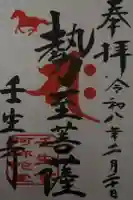 奉拝
令和八年二月二日
勢至菩薩
壬生寺